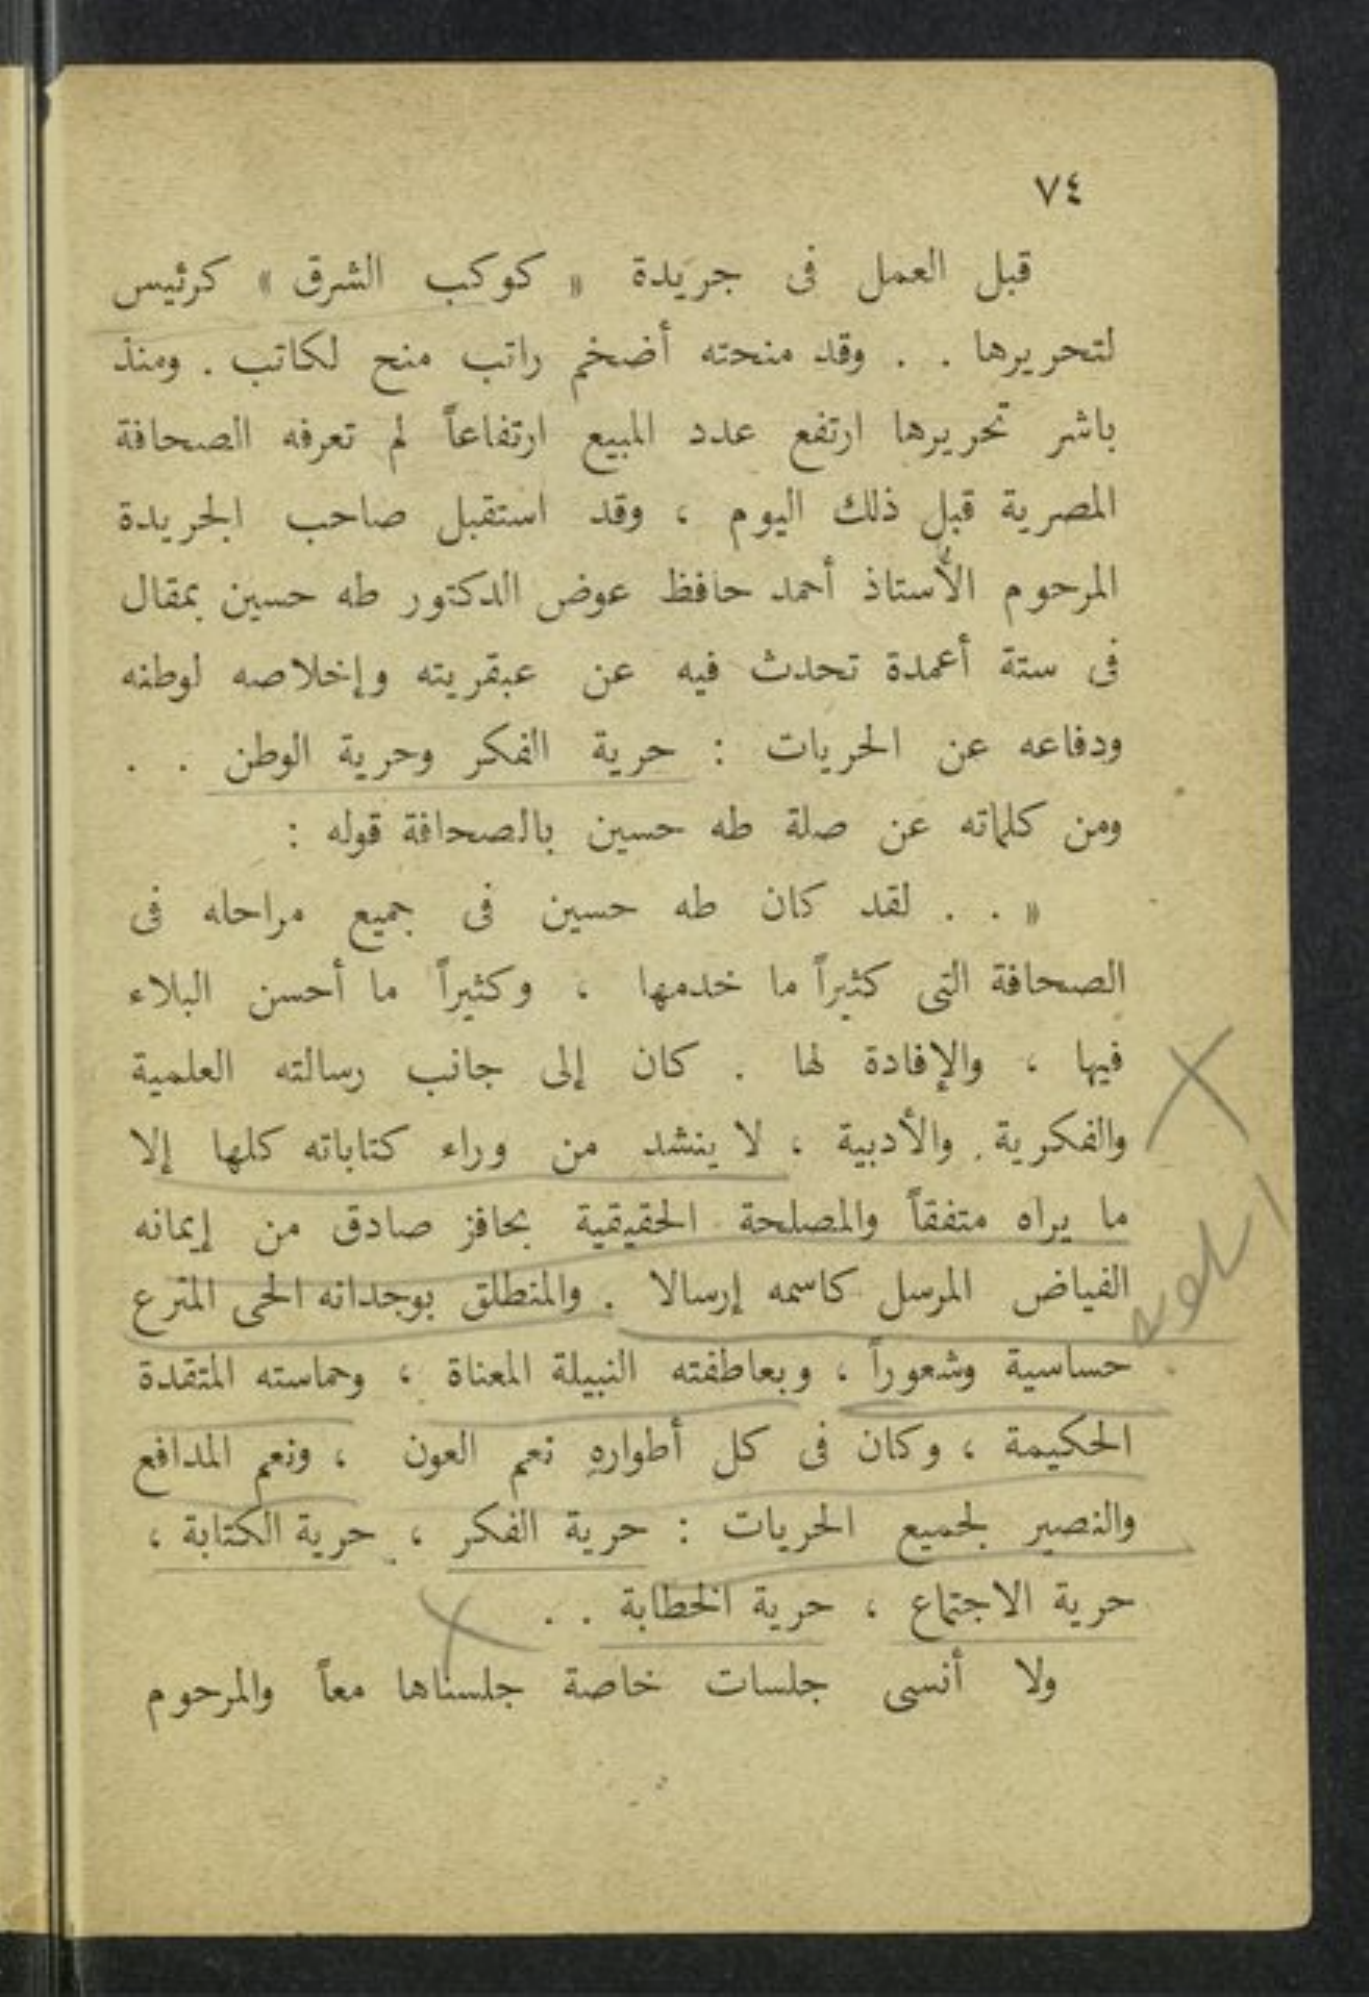 ٧٤
قبل العمل فى جريدة « كوكب الشرق » كرئيس
لتحريرها . . وقد منحته أضخم راتب منح لكاتب . ومنذ
باشر تحريرها ارتفع عدد المبيع ارتفاعاً لم تعرفه الصحافة
المصرية قبل ذلك اليوم ، وقد استقبل صاحب الجريدة
المرحوم الأستاذ أحمد حافظ عوض الدكتور طه حسين بمقال
فى ستة أعمدة تحدث فيه عن عبقريته وإخلاصه لوطنه
ودفاعه عن الحريات : حرية الفكر وحرية الوطن . .
ومن كلماته عن صلة طه حسين بالصحافة قوله :
« . . لقد كان طه حسين فى جميع مراحله فى
الصحافة التى كثيراً ما خدمها ، وكثيراً ما أحسن البلاء
فيها ، والإفادة لها . كان إلى جانب رسالته العلمية
والفكرية والأدبية ، لا ينشد من وراء كتاباته كلها إلا
ما يراه متفقاً والمصلحة الحقيقية بحافز صادق من إيمانه
الفياض المرسل كاسمه إرسالا . والمنطلق بوجدانه الحى المترع
حساسية وشعوراً ، وبعاطفته النبيلة المعناة ، وحماسته المتقدة
الحكيمة ، وكان فى كل أطواره نعم العون ، ونعم المدافع
والنصير لجميع الحريات : حرية الفكر ، حرية الكتابة ،
حرية الاجتماع ، حرية الخطابة . .
ولا أنسى جلسات خاصة جلسناها معاً والمرحوم